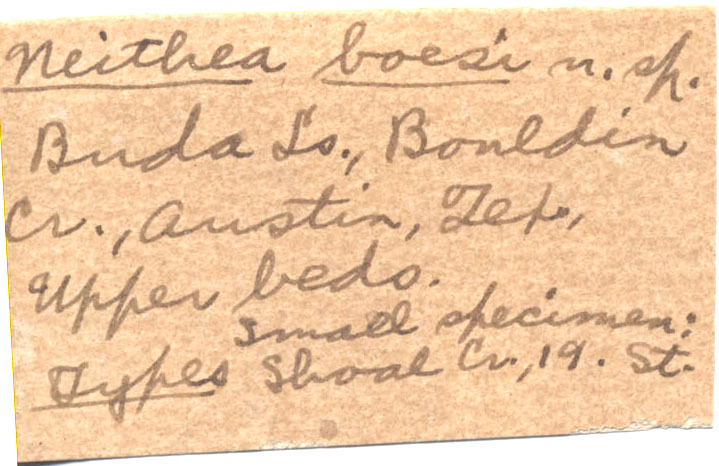 Neithea boesi n. sp.
Buda Ls., Bouldin
Cr., Austin, Tex.,
Upper beds.
Small specimen:
Types Shoal Cr., 19. St.